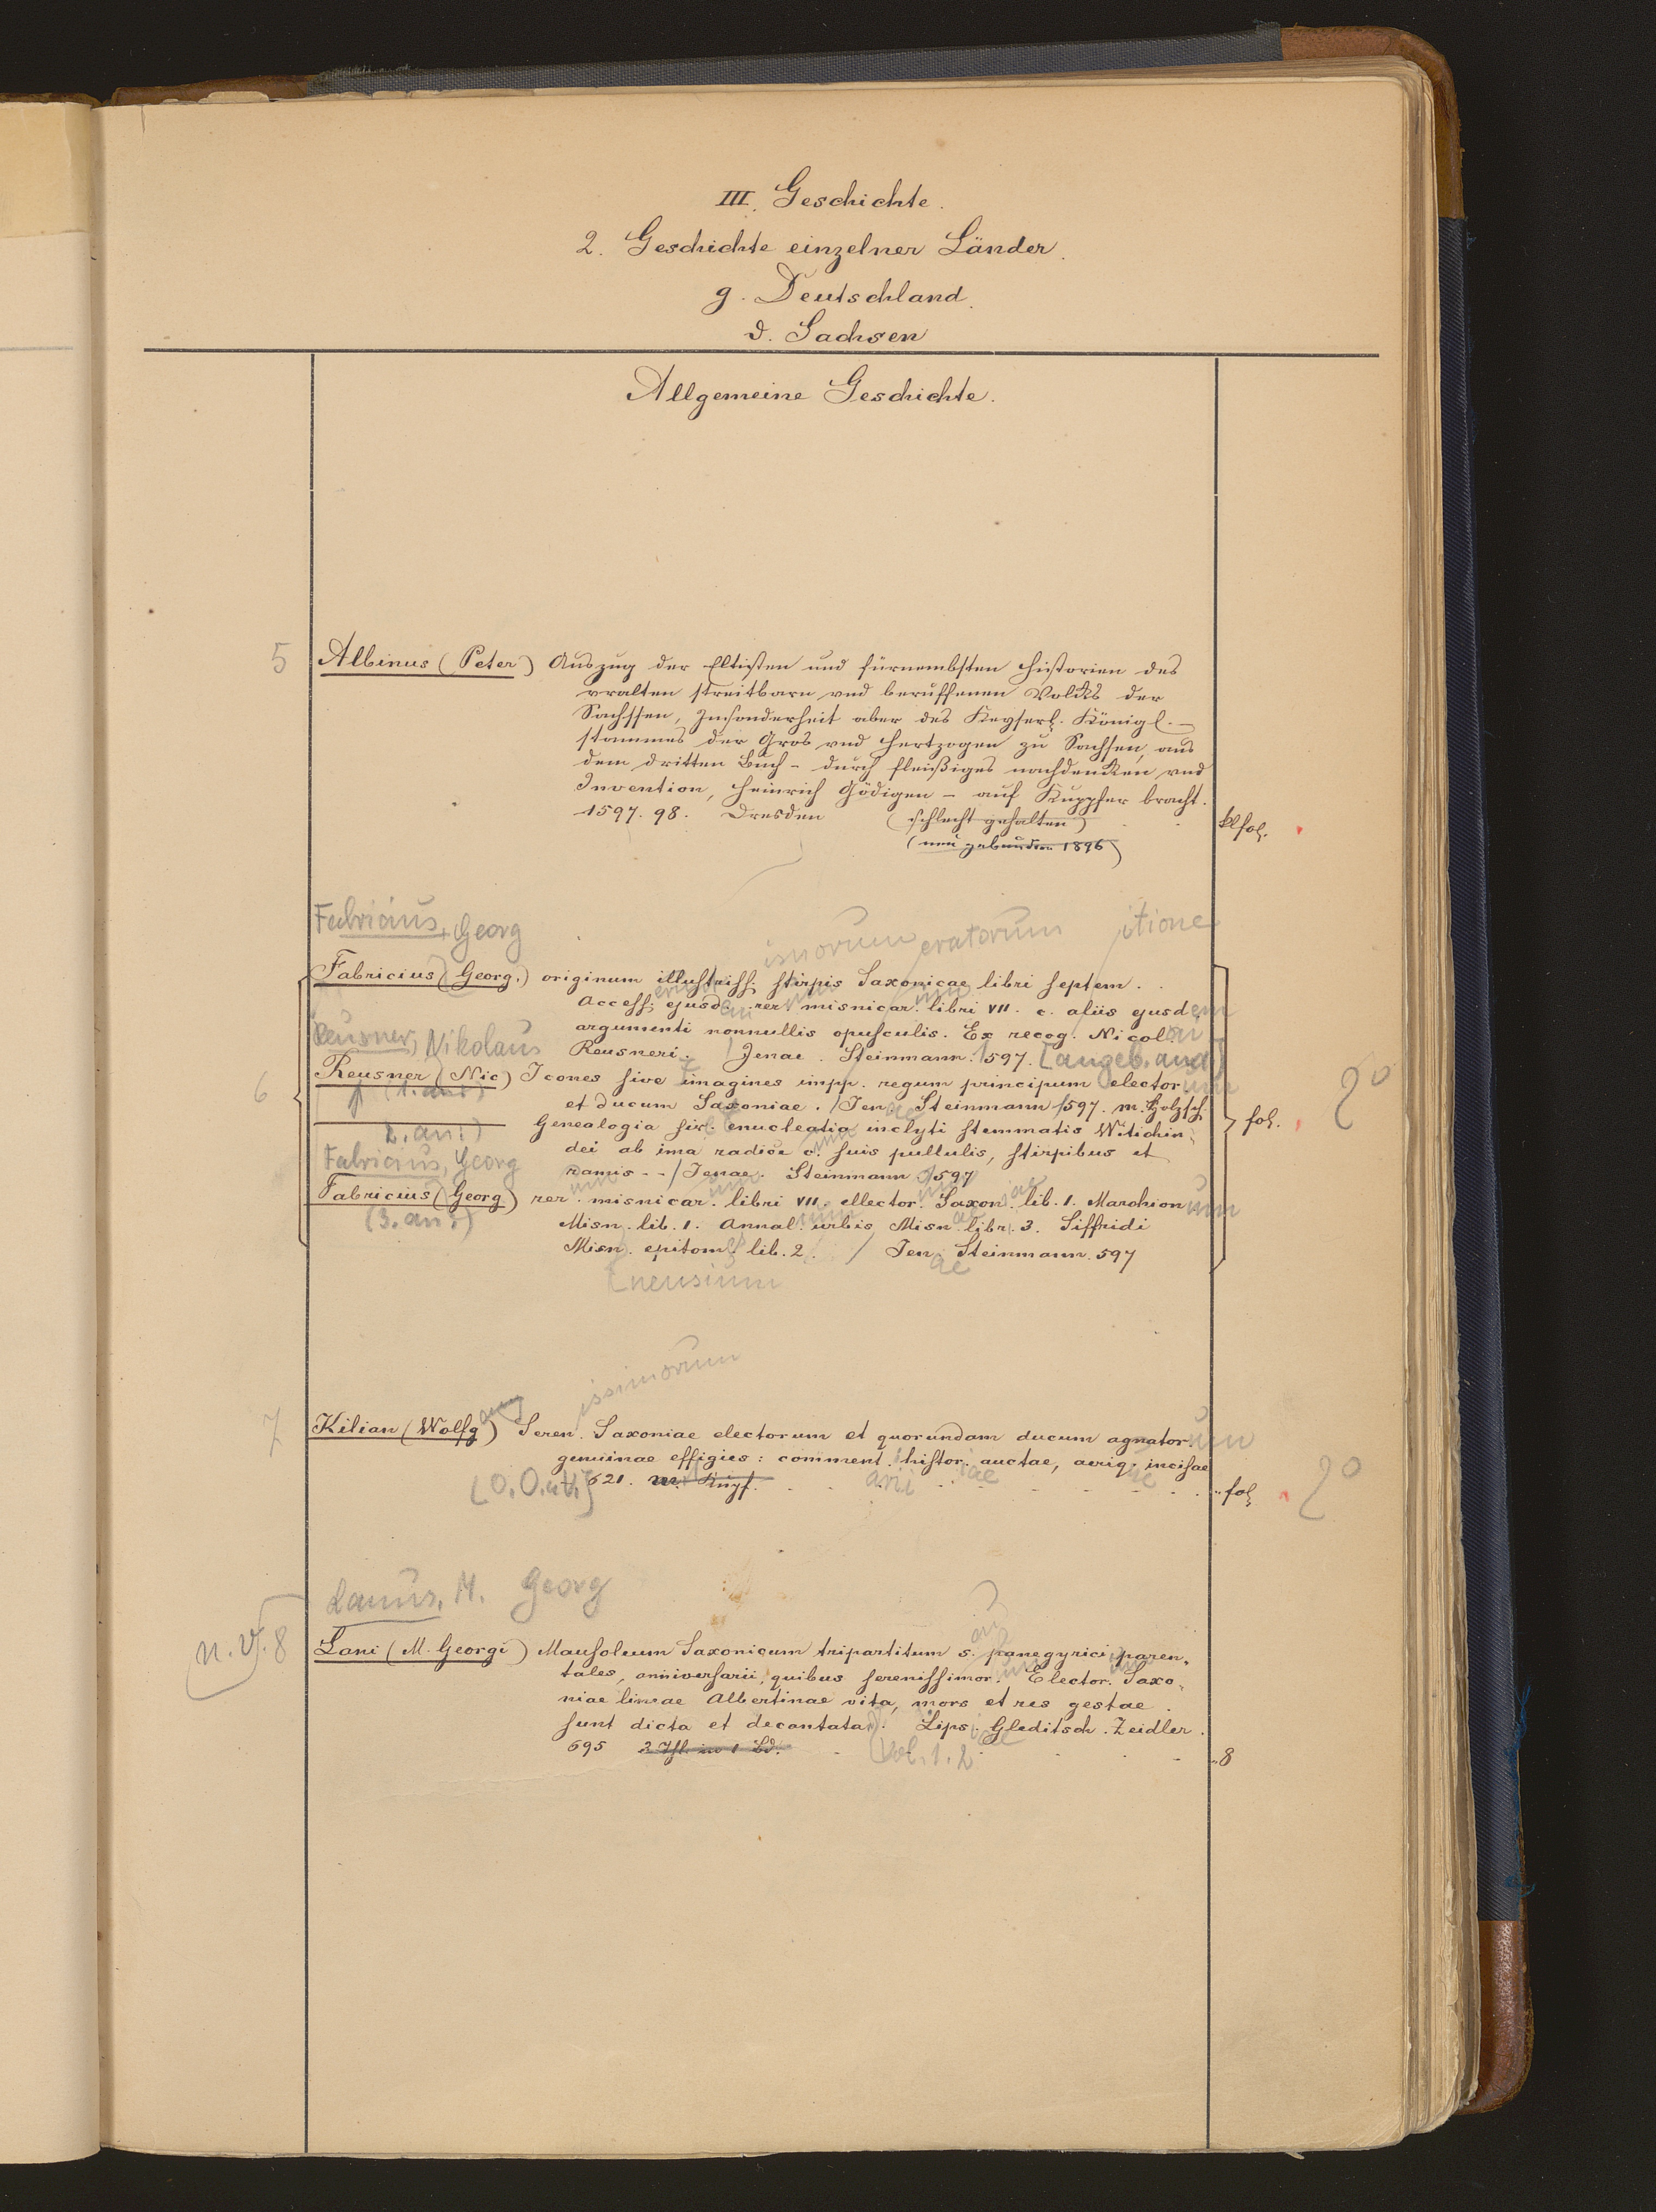 III. Geschichte.
2. Geschichte einzelner Länder.
g. Deutschland.
d. Sachsen
Allgemeine Geschichte.
5 Albinus (Peter) Auszug der Eltisten und fürnembsten Historien des
vralten streitbarn vnd beruffenen Volcks der
Sachssen, Insonderheit aber des Keyserl. Königl. –
stammes der Gros vnd Hertzogen zu Sachsen, aus
dem dritten Buch – durch fleißiges nachdencken vnd
Invention, Heinrich Gödigen – auf Kuppfer bracht.
1597. 98. Dresden (schlecht gehalten) klfol.
(neu gebunden 1896)
Fabricius, Georg
issimorum eratorum itione
Fabricius (Georg.) originum illustriss. stirpis Saxonicae libri septem.
Access. ejusd. rer. misnicar. libri VII. c. aliis ejusdem
argumenti nonnullis opusculis. Ex recog. Nicolai
Reusner, Nikolaus
Reusneri. / Jenae. Steinmann. 1597. [angeb. and]
6 Reusner (Nic) Icones sive imagines impp. regum principum elector. um
(1. an:)
et ducum Saxoniae. / Jenae Steinmann 1597. m. Holzsch. fol. 2°
2. an:)
Genealogia sive enucleatio inclyti stemmatis Witichin-
dei ab ima radice c. suis pullulis, stirpibus et
Fabricius, Georg
ramis - - / Jenae. Steinmann 1597
Fabricius (Georg) rer. misnicar. libri VII. ellector. Saxon. lib. 1. Marchion um
(3. an:)
Misn. lib. 1. Annal. urbis Misn. libr. 3. Siffridi
Misn. epitom. lib. 2. / Jenae Steinmann. 597
[nensium
issimorum
7 Kilian (Wolfgang) Seren. Saxoniae electorum et quorundam ducum agnator. um
genuinae effigies: comment. histor. auctae, aeriq. incisae
[O. O. u. V.] 1621. m. Kupf. fol. 2°
Lanus, M. Georg
n. V. 8 Lani (M. Georgi) Mausoleum Saxonicum tripartitum s. panegyrici paren-
tales, anniversarii, quibus serenissimor. Elector. Saxo-
niae lineae Albertinae vita, mors et res gestae
sunt dicta et decantata. Lips. Gleditsch. Zeidler.
695 2 Thl. in 1 Bd. Vol. 1. 2 8